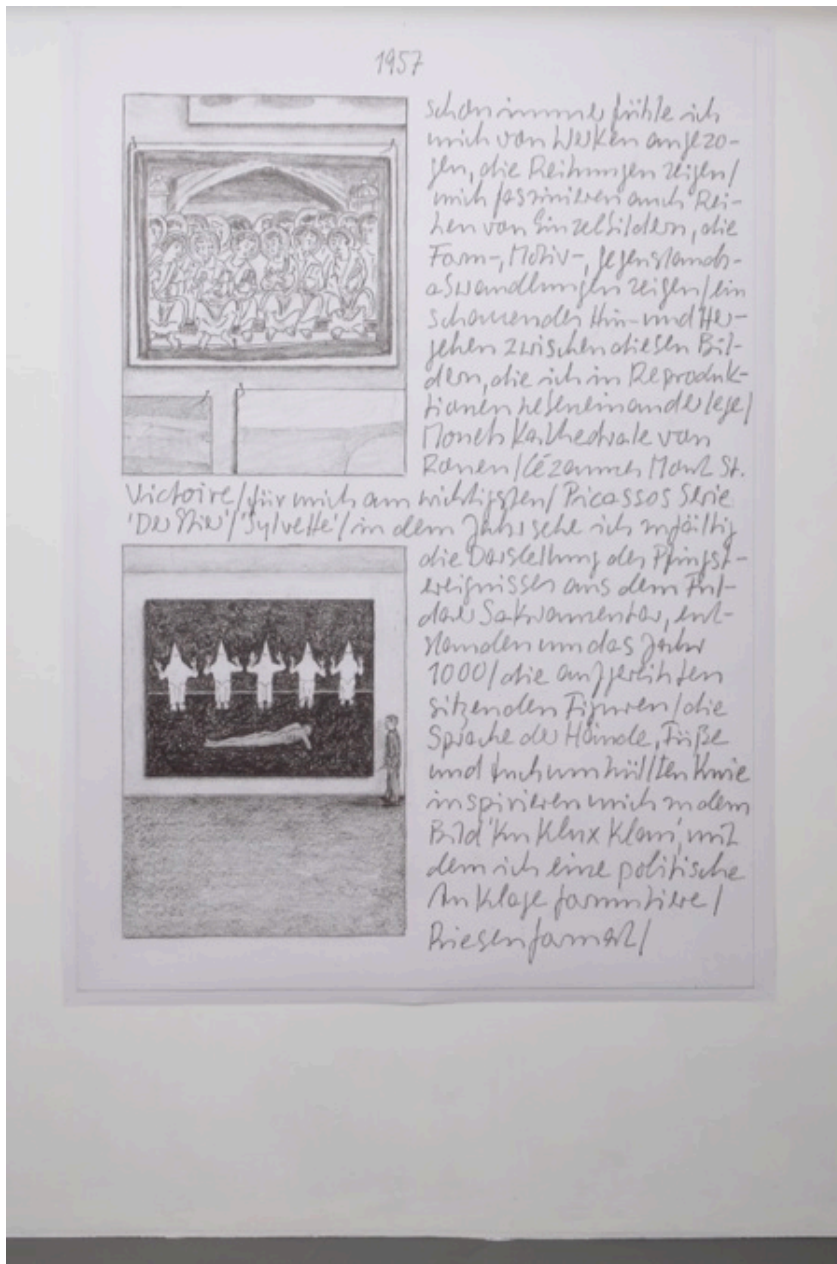 1957
schon immer fühle ich
mich von Werken angezo-
gen, die Reihungen zeigen/
mich faszinieren auch Rei-
hen von Einzelbildern, die
Form-, Motiv-, Gegenstands-
abwandlungen zeigen/ein
schauendes Hin- und Her-
gehen zwischen diesen Bil-
dern, die ich in Reproduk-
tionen nebeneinander lege/
Monets Kathedrale von
Rouen/Cézannes Mont St.
Victoire/für mich am wichtigsten/Picassos Serie
'Der Stier'/'Sylvette'/in dem Jahr sehe ich
die Darstellung des Pfingst-
ereignisses aus dem Ful-
daer Sakramentar, ent-
standen um das Jahr
1000/die aufgereihten
sitzenden Figuren/die
Sprache der Hände, Füße
und tuchumhüllten Knie
inspirieren mich zu dem
Bild 'Ku Klux Klan', mit
dem ich eine politische
Anklage formuliere/
Riesenformat/